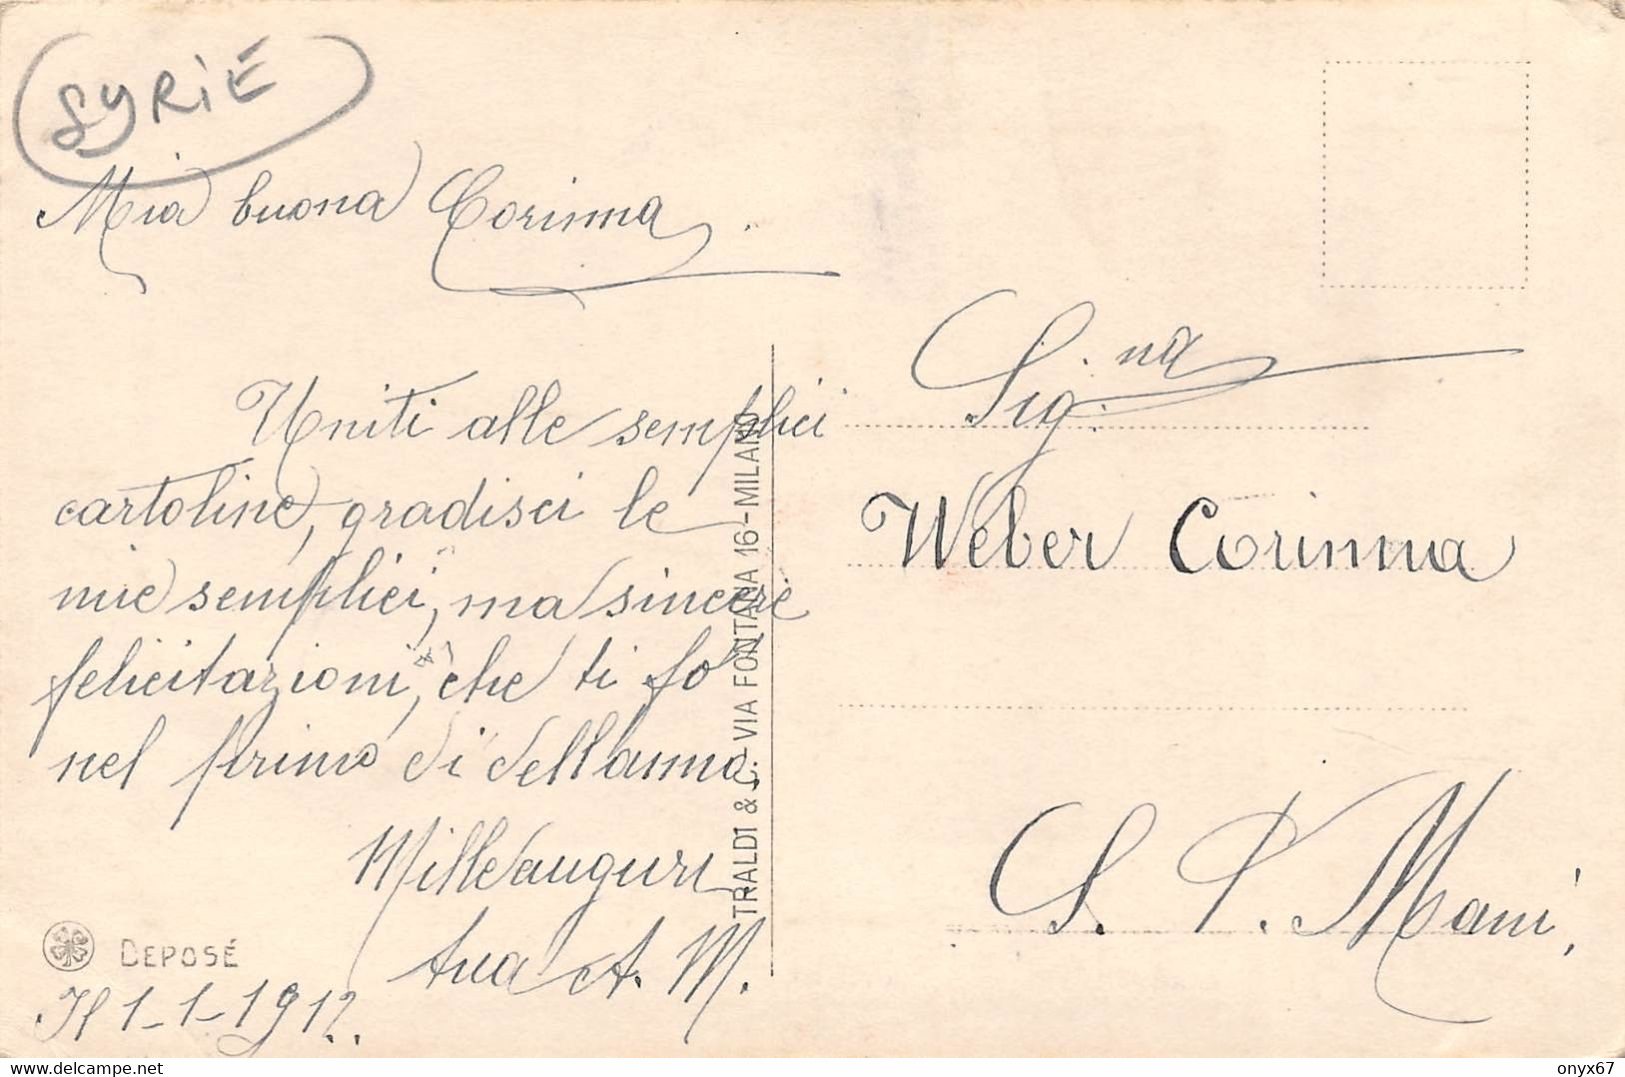 SYRIE
Mia buona Corinna.
Uniti alle semplici
cartoline, gradisci le
mie semplici, ma sincere
felicitazioni, che ti fo
nel primo di dell'anno.
Mille auguri
tua A. M.
DEPOSÉ
Il 1-1-1912.
TRALDI & C. - VIA FONTANA 16 - MILANO
Sig.na
Weber Corinna
S. P. Mani,
delcampe.net
onyx67